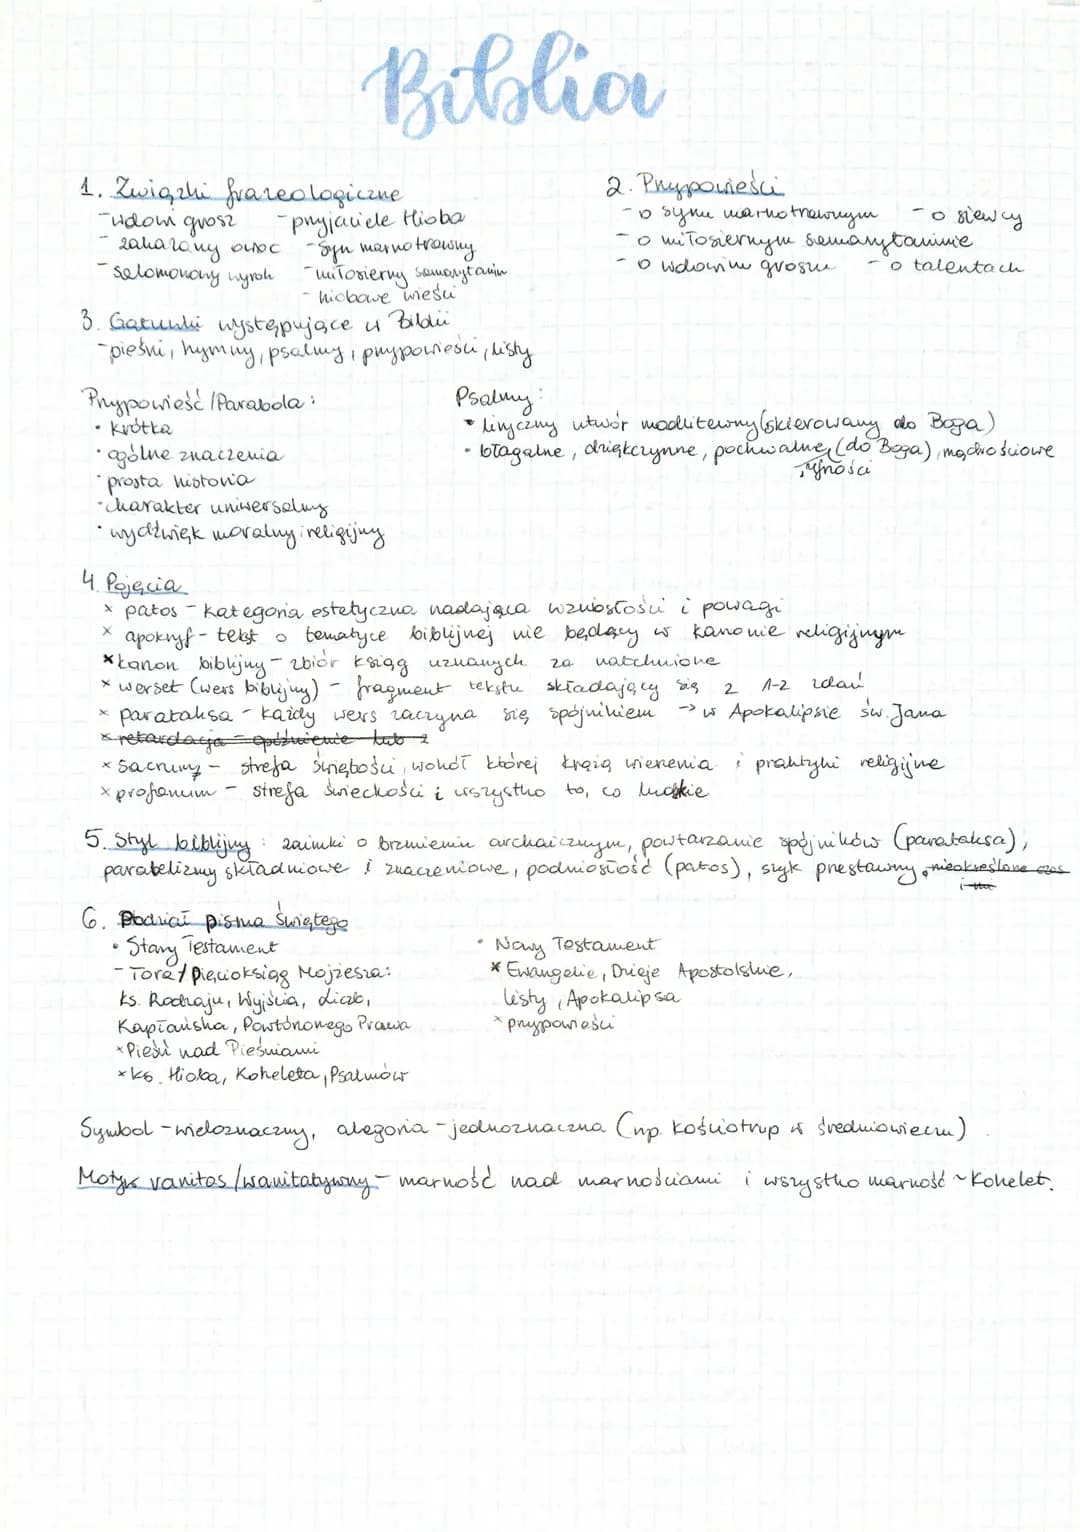 Biblia
1. Związki frazeologiczne
-wdowi grosz -przyjaciele Hioba
-zakazany owoc -syn marnotrawny
-salomonowy wyrok -miłosierny samarytanin
-hiobowe wieści
2. Przypowieści
-o synu marnotrawnym -o siewcy
-o miłosiernym samarytaninie
-o wdowim groszu -o talentach
3. Gatunki występujące w Biblii
-pieśni, hymny, psalmy, przypowieści, listy
Przypowieść/Parabola:
• krótka
• ogólne znaczenia
• prosta historia
• charakter uniwersalny
• wydźwięk moralny i religijny
Psalmy:
• liryczny utwór modlitewny (skierowany do Boga)
• błagalne, dziękczynne, pochwalne (do Boga), mądrościowe
ufności
4. Pojęcia
x patos - kategoria estetyczna nadająca wzniosłości i powagi
x apokryf - tekst o tematyce biblijnej nie będący w kanonie religijnym
x kanon biblijny - zbiór ksiąg uznanych za natchnione
x werset (wers biblijny) - fragment tekstu składający się z 1-2 zdań
x parataksa - każdy wers zaczyna się spójnikiem → w Apokalipsie św. Jana
x retardacja - opóźnienie lub z
x sacrum - strefa świętości, wokół której krążą wierzenia i praktyki religijne
x profanum - strefa świeckości i wszystko to, co ludzkie
5. Styl biblijny: zaimki o brzmieniu archaicznym, powtarzanie spójników (parataksa),
paralelizmy składniowe i znaczeniowe, podniosłość (patos), szyk przestawny, nieokreślone czas
6. Podział pisma Świętego
• Stary Testament
- Tora/Pięcioksiąg Mojżesza:
ks. Rodzaju, Wyjścia, Liczb,
Kapłańska, Powtórzonego Prawa
x Pieśń nad Pieśniami
x ks. Hioba, Koheleta, Psalmów
• Nowy Testament
x Ewangelie, Dzieje Apostolskie,
listy, Apokalipsa
x przypowieści
Symbol - wieloznaczny, alegoria - jednoznaczna (np. kościotrup w średniowieczu).
Motyw vanitas/wanitatywny - marność nad marnościami i wszystko marność ~ Kohelet.